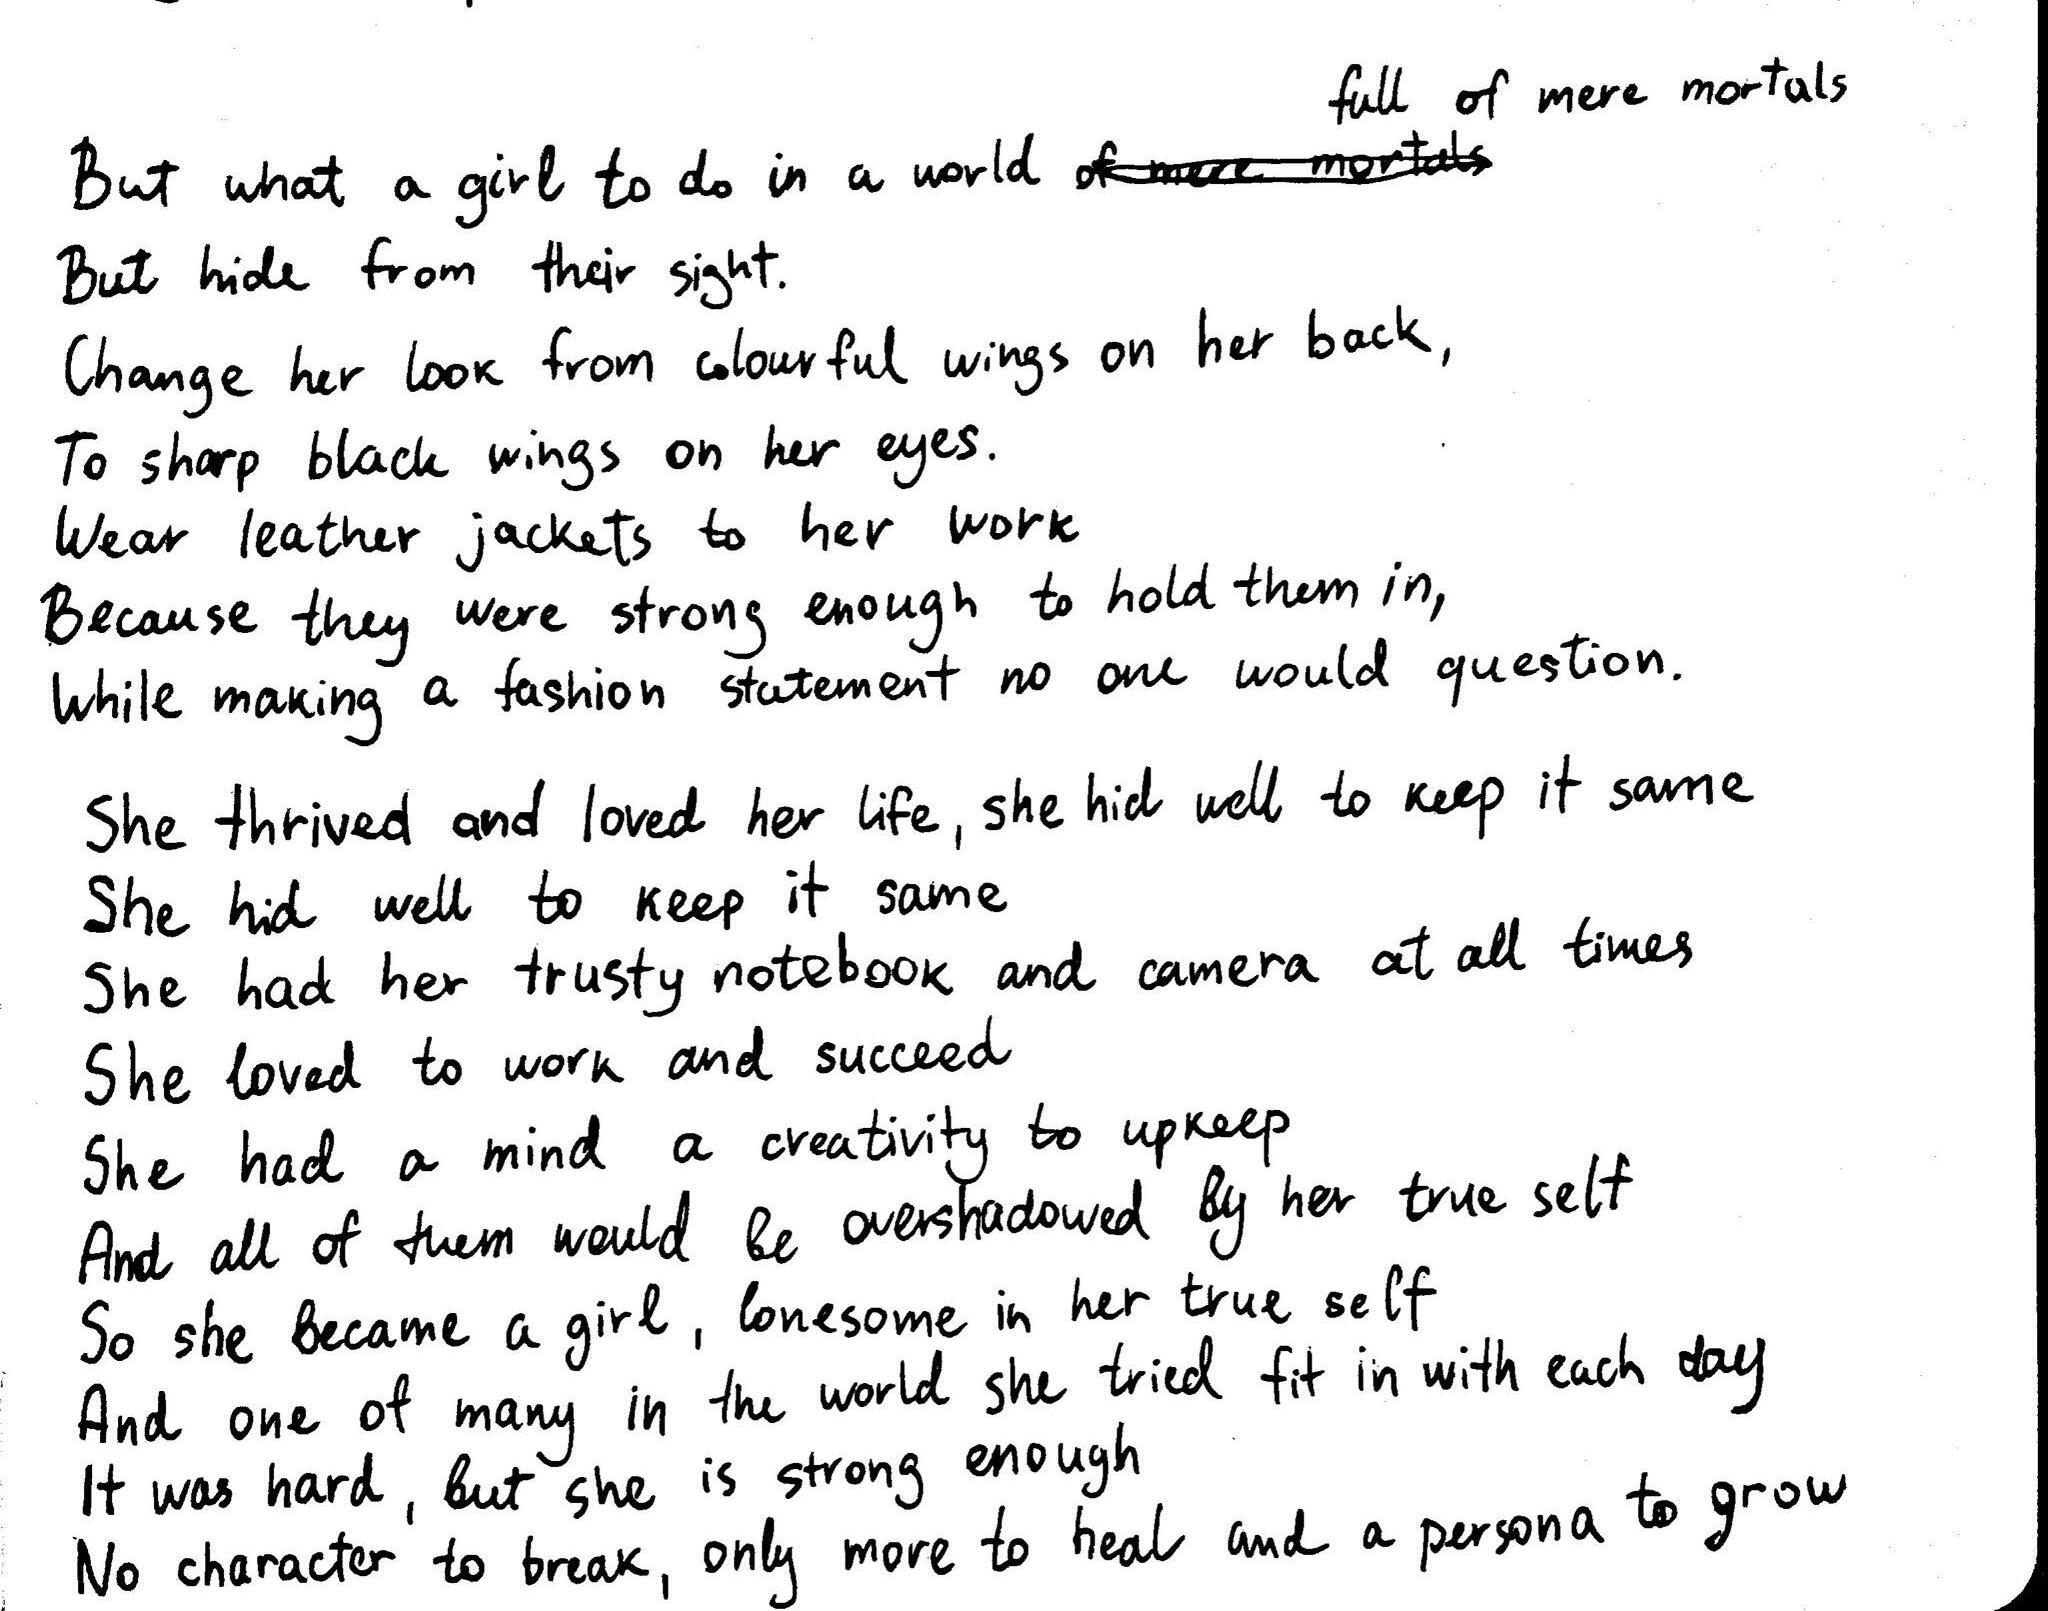 full of mere mortals
But what a girl to do in a world of mere mortals
But hide from their sight.
Change her look from colourful wings on her back,
To sharp black wings on her eyes.
Wear leather jackets to her work
Because they were strong enough to hold them in,
While making a fashion statement no one would question.
She thrived and loved her life, she hid well to keep it same
She hid well to keep it same
She had her trusty notebook and camera at all times
She loved to work and succeed
She had a mind a creativity to upkeep
And all of them would be overshadowed by her true self
So she became a girl, lonesome in her true self
And one of many in the world she tried fit in with each day
It was hard, but she is strong enough
No character to break, only more to heal and a persona to grow